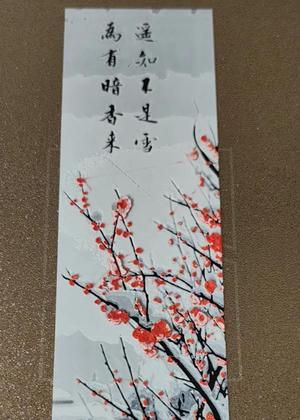 遥知不是雪
为有暗香来